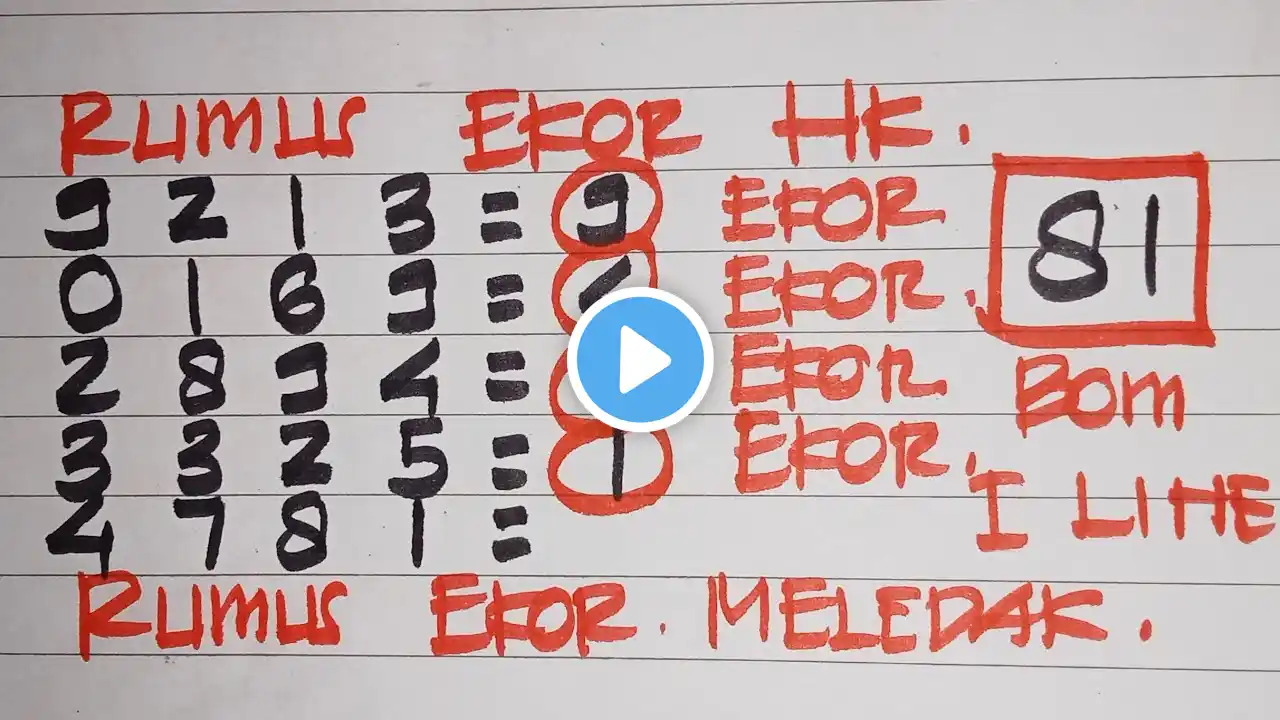 RUMUS EKOR HK.
9 2 1 3 = 9 EKOR
0 1 6 9 = EKOR.
2 8 9 4 = EKOR.
3 3 2 5 = 1 EKOR.
4 7 8 1 =
81
BOM
I LINE
RUMUS EKOR. MELEDAK.